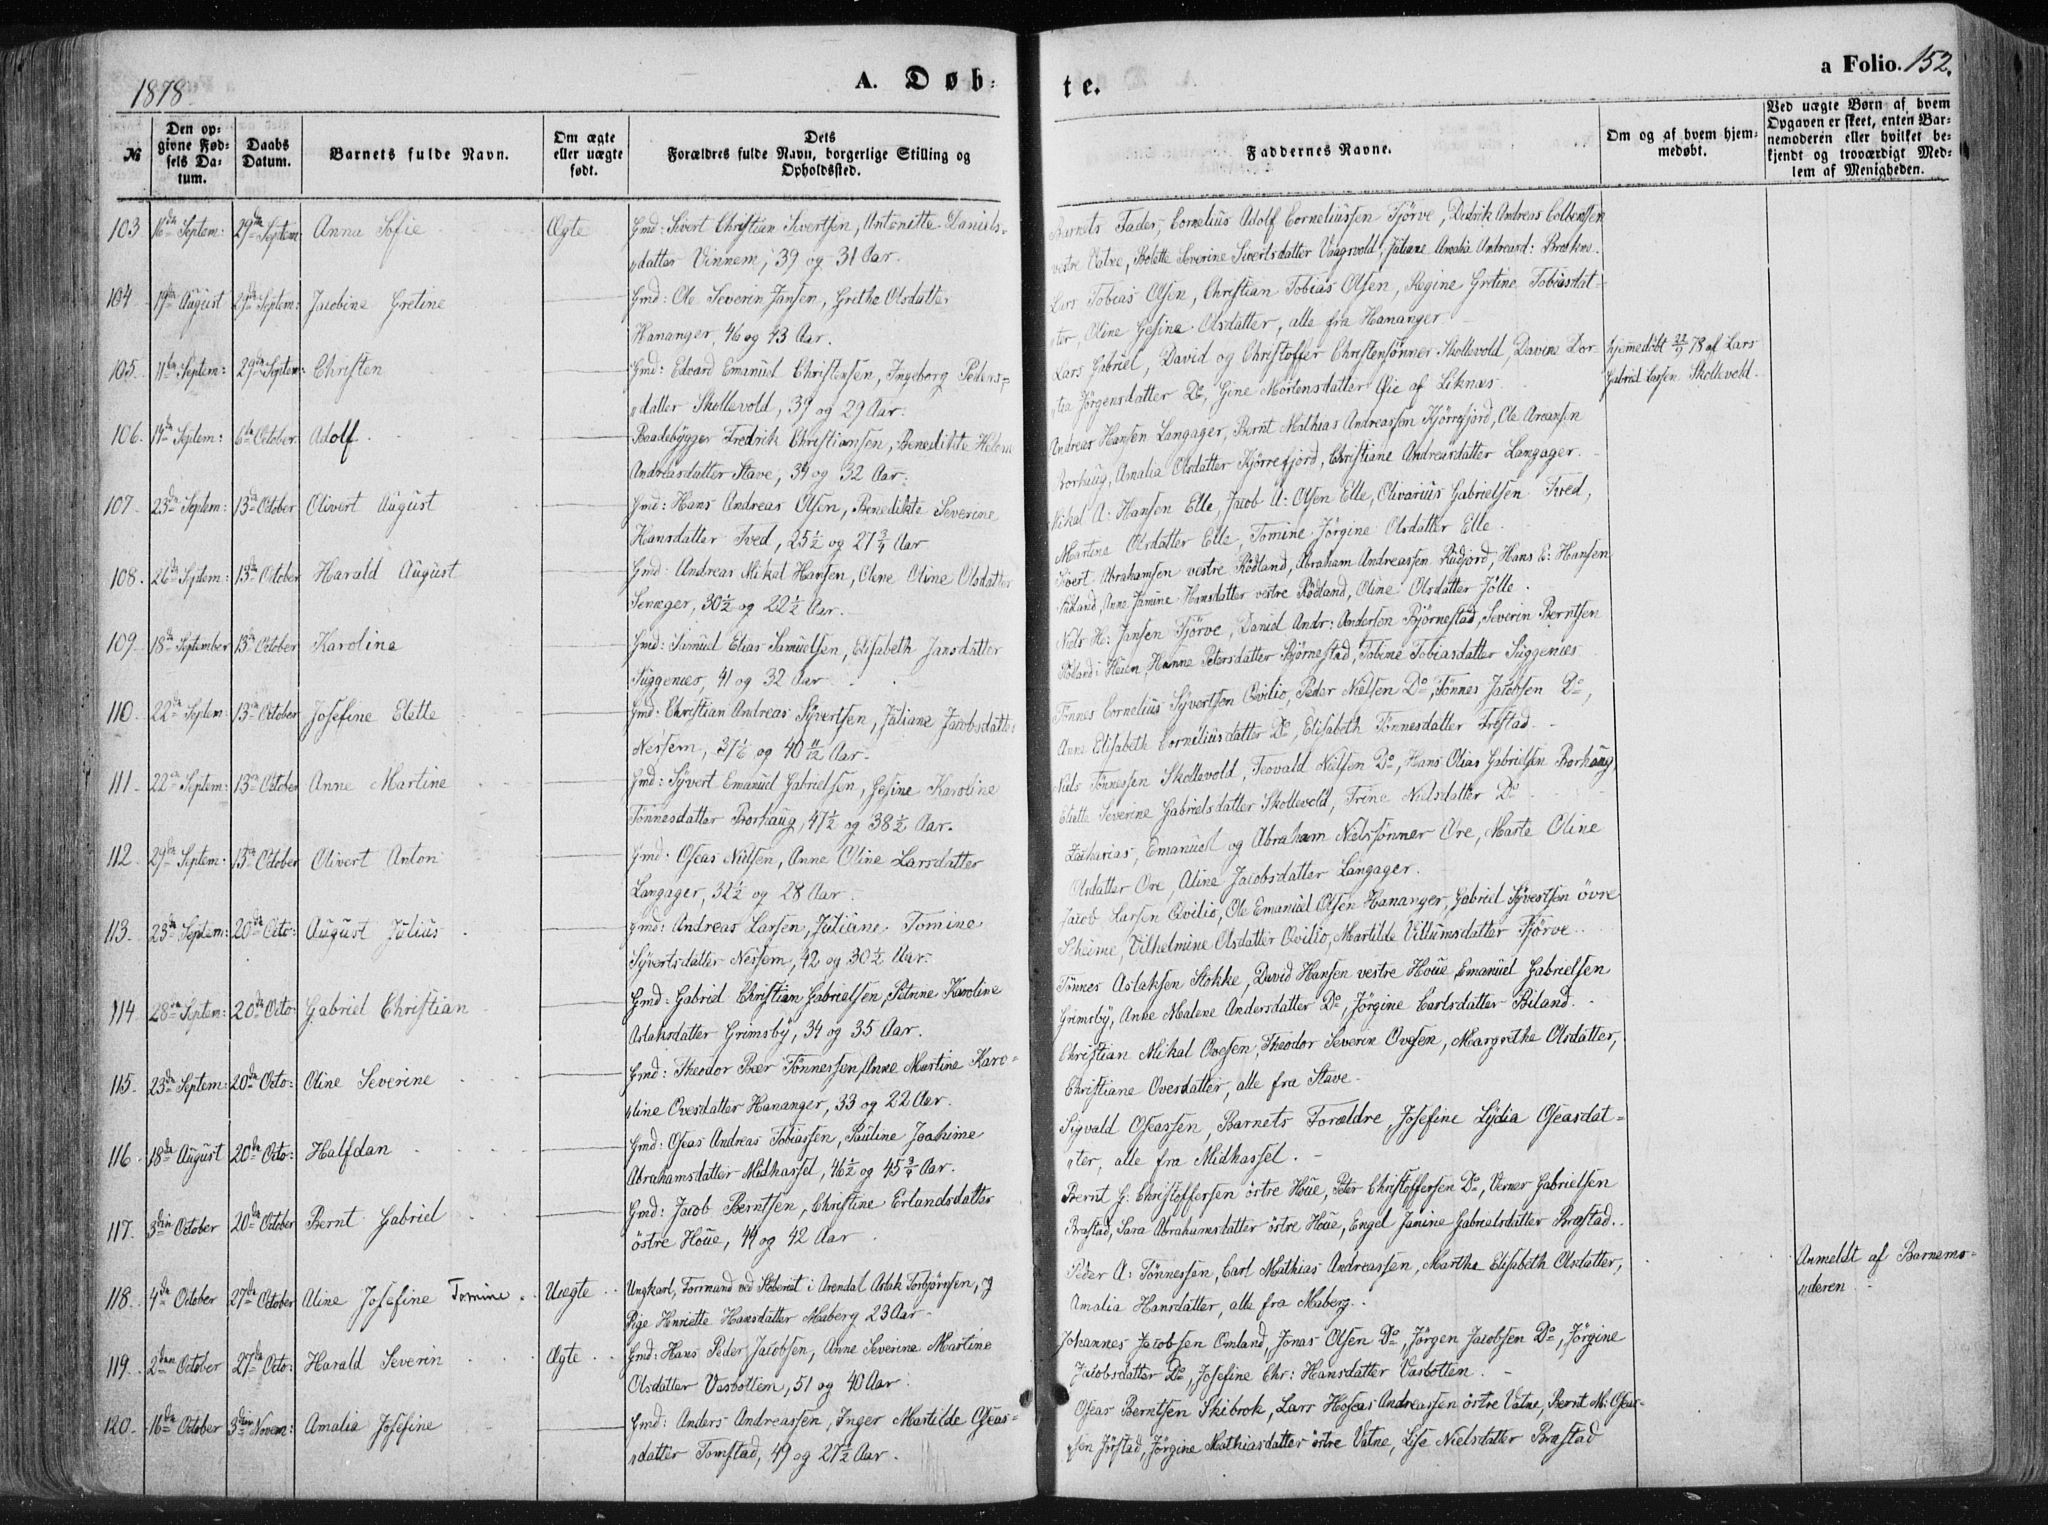 1878.
A. Døb-
te.
a Folio. 152.
№
Den opgivne Fødsels Datum.
Daabs Datum.
Barnets fulde Navn.
Om ægte eller uægte født.
Dets Forældres fulde Navn, borgerlige Stilling og Opholdssted.
Faddernes Navne.
Om og af hvem hjemmedøbt.
Ved uægte Børn af hvem Opgaven er skeet, enten Barnemoderen eller hvilket bekjendt og troværdigt Medlem af Menigheden.
103 16de Septem: 29de Septem Anna Sofie Ægte Gmd: Sivert Christian Sivertsen, Antonette Daniels- Barnets Fader, Cornelius Adolf Corneliussen Fjörve, Didrik Andreas
"datter Vinnem, 39 og 31 Aar. vestre Vatne, Bolette Severine Sivertsdatter Vaagsvold, Juliane Amalia Andread:
104 19de August 29de Septem: Jacobine Gretine Gmd: Ole Severin Jansen, Grethe Olsdatter Lars Tobias Olsen, Christian Tobias Olsen, Regine Gretine Tobiasdat-
Hananger, 46 og 43 Aar. "ter, Oline Gesine Olsdatter, alle fra Hananger.
105. 11te Septem: 29de Septem: Christen Gmd: Edvard Emanuel Christensen, Ingeborg Peders- Lars Gabriel, David og Christoffer Christensönner Skollevold, Davine Dor- hjemmedöbt 22/9 78 af Lars
"datter Skollevold, 39 og 29 Aar: "tea Jörgensdatter Do, Gine Mortensdatter Øie af Liknæs. Gabriel Larsen Skollevold.
106. 14de Septem: 6te October. Adolf. Baadebygger Fredrik Christiansen, Benedikte Helene Andreas Hansen Langager, Bernt Mathias Andreassen Kjörrefjord, Ole Areansen
Andreasdatter Stave, 34 og 32 Aar: Borhaug, Amalia Olsdatter Kjörrefjord, Christiane Andreasdatter Langager.
107. 23de Septem: 13de October Olivert August Gmd: Hans Andreas Olsen, Benedikte Severine Mikal A: Hansen Elle, Jacob A: Olsen Elle, Olivarius Gabrielsen Tved,
Hansdatter Tved, 25½ og 27¾ Aar Martine Olsdatter Elle, Tomine Jörgine Olsdatter Elle.
108. 26de Septem: 13de October Harald August Gmd: Andreas Mikal Hansen, Olene Oline Olsdatter Sivert Abrahamsen vestre Rödland, Abraham Andreassen Rudjord, Hans E: Hansen
Senæger, 30½ og 22½ Aar. Rödland, Anne Jamine Hansdatter vestre Rödland, Oline Olsdatter Jölle.
109. 18de September 13de October Karoline Gmd: Samuel Elias Samuelsen, Elisabeth Jansdatter Niels H: Jansen Fjörve, Daniel Andr: Andersen Björnestad, Severin Berntsen
Süggenæs, 41 og 32 Aar Rödland i Heien, Hanne Petersdatter Björnestad, Tobine Tobiasdatter Süggenæs.
110. 22de Septem 13de October Josefine Elette Gmd: Christian Andreas Syvertsen, Juliane Jacobsdatter Tönnes Cornelius Syvertsen Qvilio, Peder Nielsen Do, Tönnes Jacobsen Do,
Nessem, og 40 11/12 Aar. Anne Elisabeth Corneliusdatter Do, Elisabeth Tönnesdatter Frestad.
111. 22de Septem: 13de October Anne Martine Gmd: Syvert Emanuel Gabrielsen, Gesine Karoline Niels Tönnessen Skollevold, Teovald Nielsen Do, Hans Olias Gabrielsen Borhaug,
Tönnesdatter Borhaug, 47½ og 38½ Aar. Elette Severine Gabrielsdatter Skollevold, Trine Nielsdatter Do
112. 29de Septem: 13de October Olivert Anton Gmd: Oseas Nielsen, Anne Oline Larsdatter Zacharias, Emanuel og Abraham Nielssönner Ore, Marte Oline
Langager, 32½ og 28 Aar. Olsdatter Ore, Aline Jacobsdatter Langager.
113. 23de Septem: 20de Octo: August Julius Gmd: Andreas Larsen, Juliane Tomine Jacob Larsen Qvilio, Ole Emanuel Olsen Hananger, Gabriel Syvertsen övre
Syvertsdatter Nessem, 42 og 30½ Aar. Skeime, Vilhelmine Olsdatter Qvilio, Martilde Villumsdatter Fjörve.
114. 28de Septem: 20de Octo: Gabriel Christian Gmd: Gabriel Christian Gabrielsen, Petrine Karoline Tönnes Aslaksen Stokke, David Hansen vestre Houe, Emanuel Gabrielsen
Aslaksdatter Grimsby, 34 og 35 Aar. Grimsby, Anne Malene Andersdatter Do, Jörgine Carlsdatter Biland.
115. 23de Septem: 20de Octo: Oline Severine Gmd: Theodor Bær Tönnessen, Anne Martine Karo- Christian Mikal Ovesen, Theodor Severin Ovesen, Margrethe Olsdatter,
"line Ovesdatter Hananger, 33 og 22 Aar. Christiane Ovesdatter, alle fra Stave.
116. 18de August 20de Octo: Halfdan Gmd: Oseas Andreas Tobiassen, Pauline Joakime Sigvald Oseassen, Barnets Forældre, Josefine Lydia Oseasdat-
Abrahamsdatter Midhassel, 46½ og 45¾ Aar. "ter, alle fra Midhassel.
117. 3die October 20de October Bernt Gabriel Gmd: Jacob Berntsen, Christine Erlandsdatter Bernt G: Christoffersen östre Houe, Peter Christoffersen Do, Verner Gabrielsen
östre Houe, 49 og 42 Aar Brastad, Sara Abrahamsdatter östre Houe, Engel Jamine Gabrielsdatter Brastad.
118. 4de October 27de October Aline Josefine Tomine Uægte Ungkarl, Formand ved i Arendal Aslak Torbjörnsen, og Peder A: Tönnessen, Carl Mathias Andreassen, Marthe Elisabeth Olsdatter, Anmeldt af Barnemo-
Pige Henriette Hansdatter Maberg 23 Aar Amalia Hansdatter, alle fra Maberg. "deren
119. 2den October 27de Octo: Harald Severin Ægte Gmd: Hans Peder Jacobsen, Anne Severine Martine Johannes Jacobsen Omland, Jonas Olsen Do, Jörgen Jacobsen Do, Jörgine
Olsdatter Vasbotten, 51 og 40 Aar. Jacobsdatter Do, Josefine Chr: Hansdatter Vasbotten.
120. 16de October 3die Novem: Amalia Josefine Gmd: Anders Andreassen, Inger Martilde Oseas- Oseas Berntsen Skibrok, Lars Hoseas Andreassen östre Vatne, Bernt M: Oseas-
"datter Tomstad, 49 og 27½ Aar. "sen Jörstad, Jörgine Mathiasdatter östre Vatne, Lise Nielsdatter Brastad